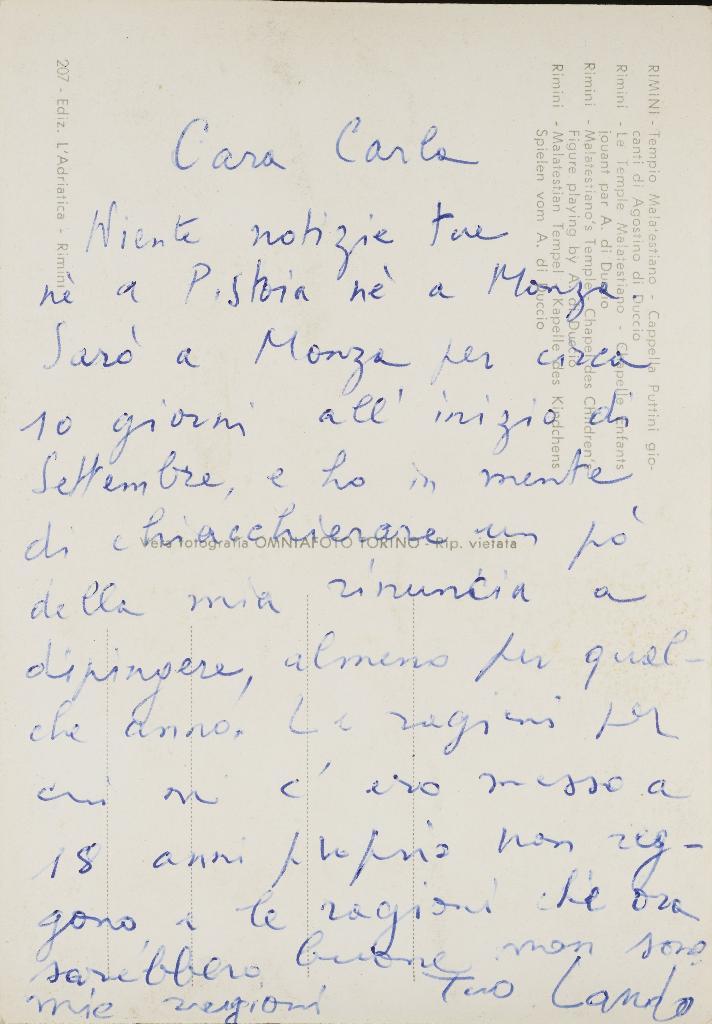 Cara Carla
Niente notizie tue
nè a Pistoia nè a Monza.
Sarò a Monza per circa
10 giorni all' inizio di
Settembre, e ho in mente
di chiacchierare un pò
della mia rinuncia a
dipingere, almeno per qual-
che anno. Le ragioni per
cui mi c'ero messo a
18 anni proprio non reg-
gono, e le ragioni che ora
sarebbero buone non sono
mie ragioni Tuo Lando
RIMINI - Tempio Malatestiano - Cappella Puttini gio-
canti di Agostino di Duccio
Rimini - Le Temple Malatestiano - Chapelle Enfants
jouant par A. di Duccio
Rimini - Malatestiano's Temple - Chapel des Children's
Figure playing by A. di Duccio
Rimini - Malatestian Tempel Kapelle des Kindchens
Spielen vom A. di Duccio
207 - Ediz. L'Adriatica - Rimini
Vera fotografia OMNIAFOTO TORINO - Rip. vietata